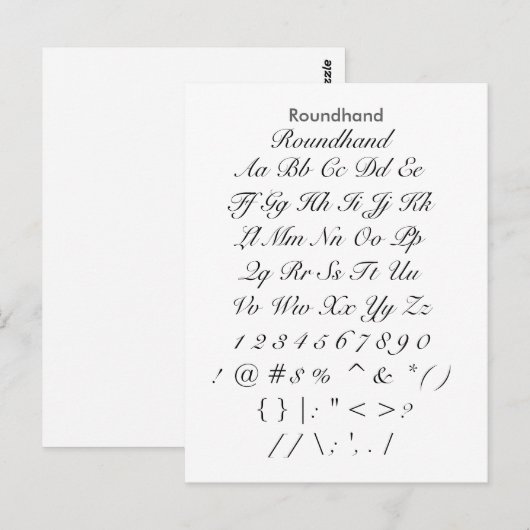 Roundhand
Roundhand
Aa Bb Cc Dd Ee
Ff Gg Hh Ii Jj Kk
Ll Mm Nn Oo Pp
Qq Rr Ss Tt Uu
Vv Ww Xx Yy Zz
1 2 3 4 5 6 7 8 9 0
! @ # $ % ^ & * ( )
{ } | : " < > ?
/ / \ ; ' , . /